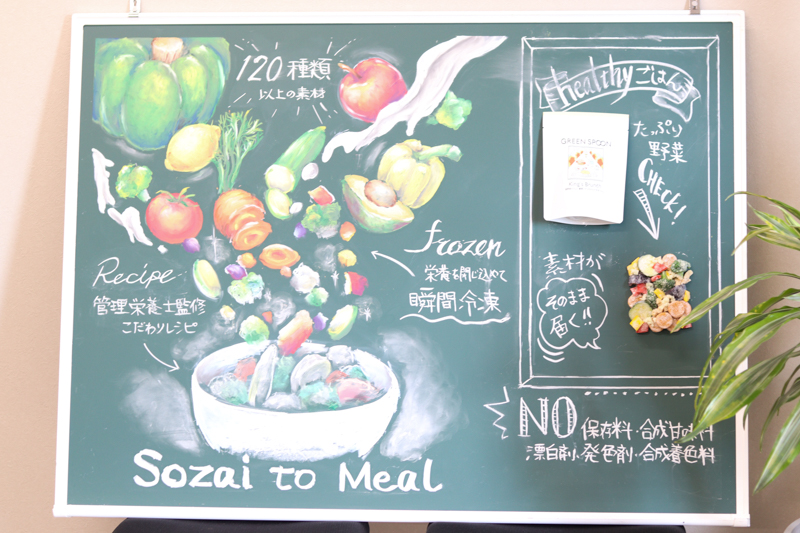 120種類
以上の素材
frozen
栄養を閉じ込めて
瞬間冷凍
Recipe
管理栄養士監修
こだわりレシピ
Sozai to Meal
healthyごはん
GREEN SPOON
たっぷり
野菜
CHECK!
素材が
そのまま
届く!!
NO 保存料・合成甘味料
漂白剤・発色剤・合成着色料